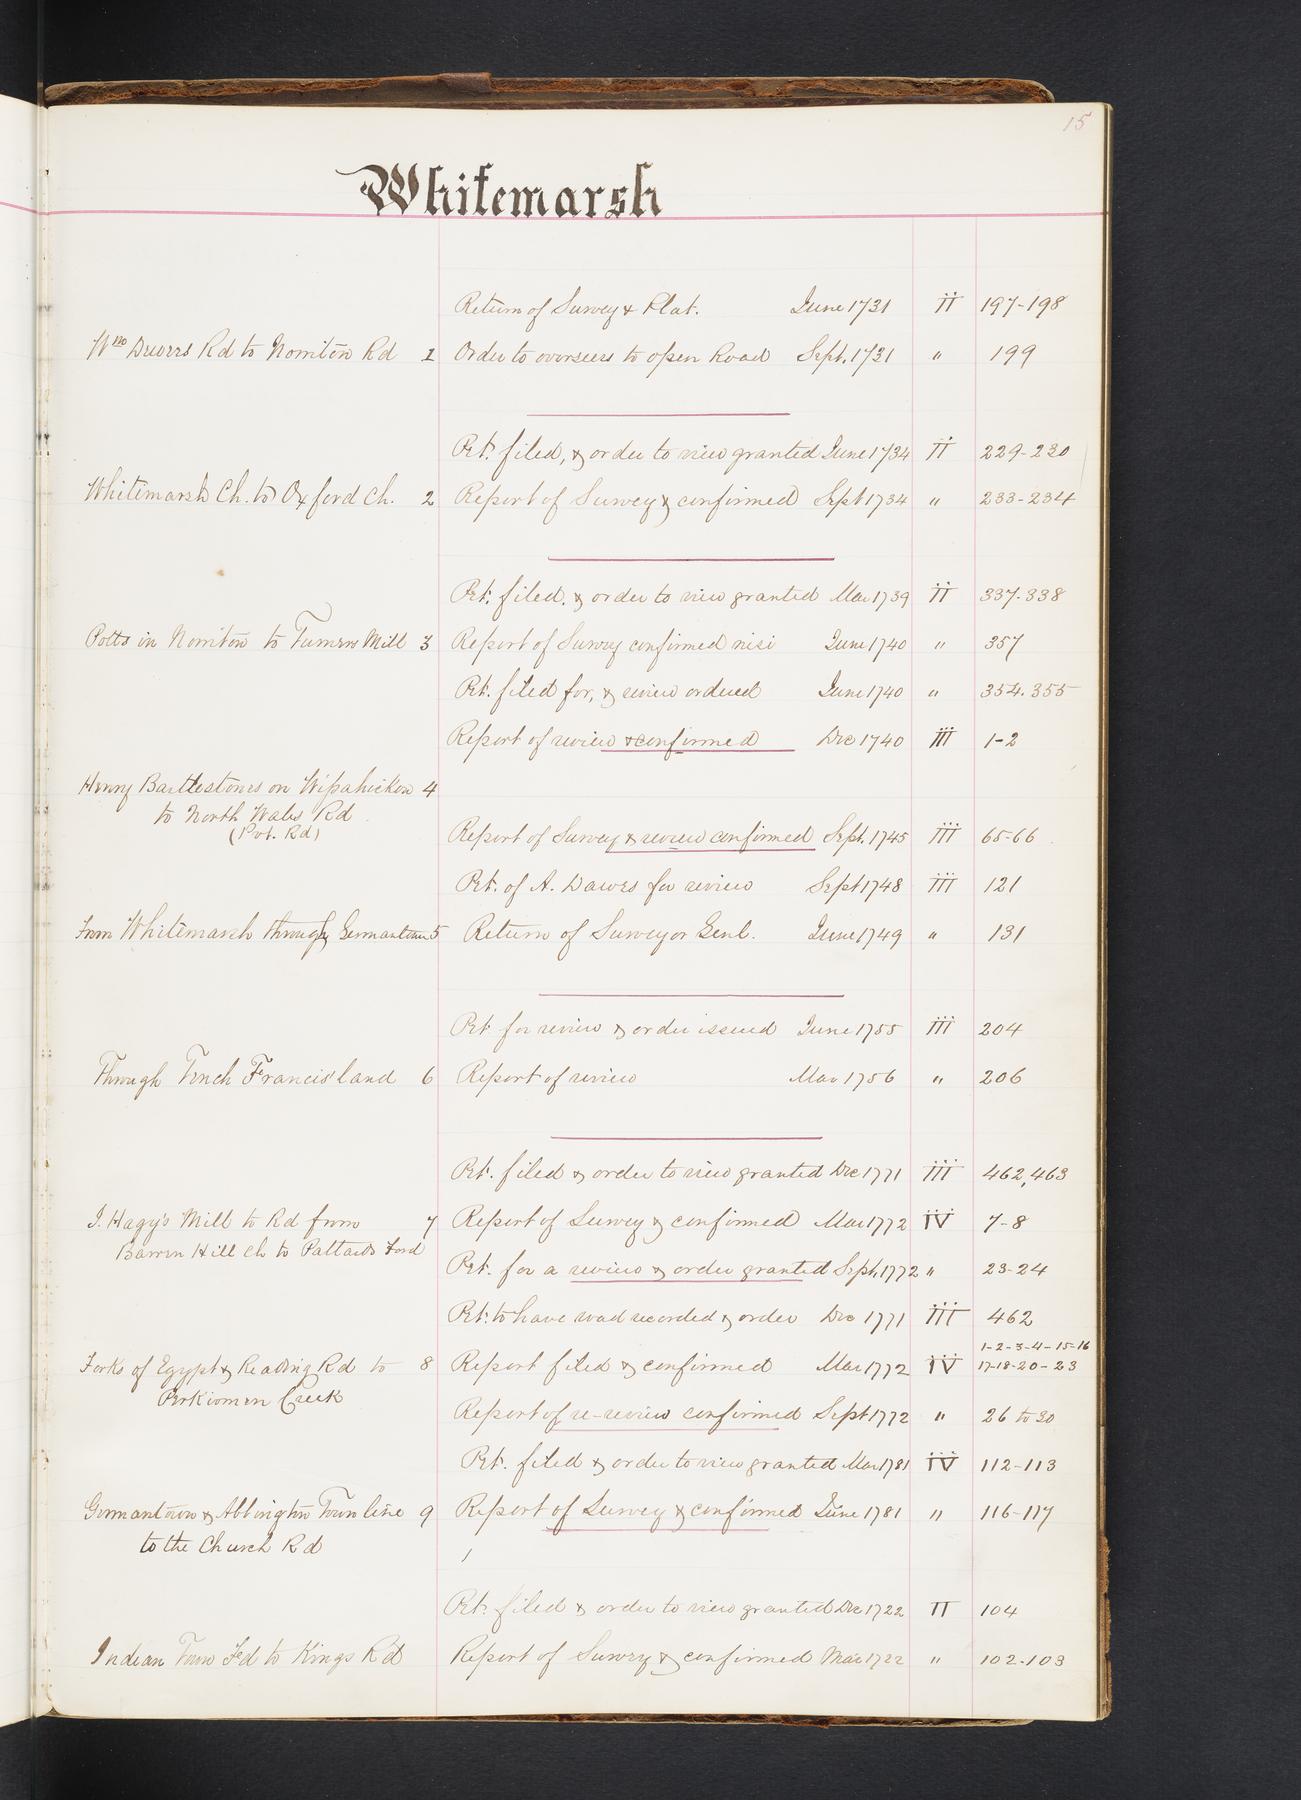 15
Whitemarsh
Return of Survey & Plat. June 1731 II 197-198
Wm Dewers Rd to Norriton Rd 1 Order to overseers to open Road Sept. 1731 " 199
Pet. filed, & order to view granted June 1734 II 229-230
Whitemarsh Ch. to Oxford Ch. 2 Report of Survey & confirmed Sept 1734 " 233-234
Pet. filed. & order to view granted Mar 1739 II 337.338
Potts in Norriton to Turners Mill 3 Report of Survey confirmed nisi June 1740 " 357
Pet. filed for, & review ordered June 1740 " 354.355
Report of review & confirmed Dec 1740 III 1-2
Henry Bartlestones on Wisahickon 4
to North Wales Rd
(Pvt. Rd)
Report of Survey & review confirmed Sept. 1745 III 65-66
Pet. of A. Dawes for review Sept 1748 III 121
From Whitemarsh through Germantown 5 Return of Surveyor Genl. June 1749 " 131
Pet for review & order issued June 1755 III 204
Through Tench Francis' land 6 Report of review Mar 1756 " 206
Pet. filed & order to view granted Dec 1771 III 462,463
J. Hagy's Mill to Rd from 7 Report of Survey & confirmed Mar 1772 IV 7-8
Barren Hill Ch to Ford
Pet. for a review & order granted Sept. 1772 " 23-24
Pet. to have road recorded & order Dec 1771 III 462
1-2-3-4-15-16
Forks of Egypt & Reading Rd to 8 Report filed & confirmed Mar 1772 IV 17-18-20-23
Perkiomen Creek
Report of re-review confirmed Sept 1772 " 26 to 30
Pet. filed & order to view granted Mar 1781 IV 112-113
Germantown & Abbington Town line 9 Report of Survey & confirmed June 1781 " 116-117
to the Church Rd
Pet. filed & order to view granted Dec 1722 II 104
Indian Town Fd to Kings Rd Report of Survey & confirmed Mar 1722 " 102-103